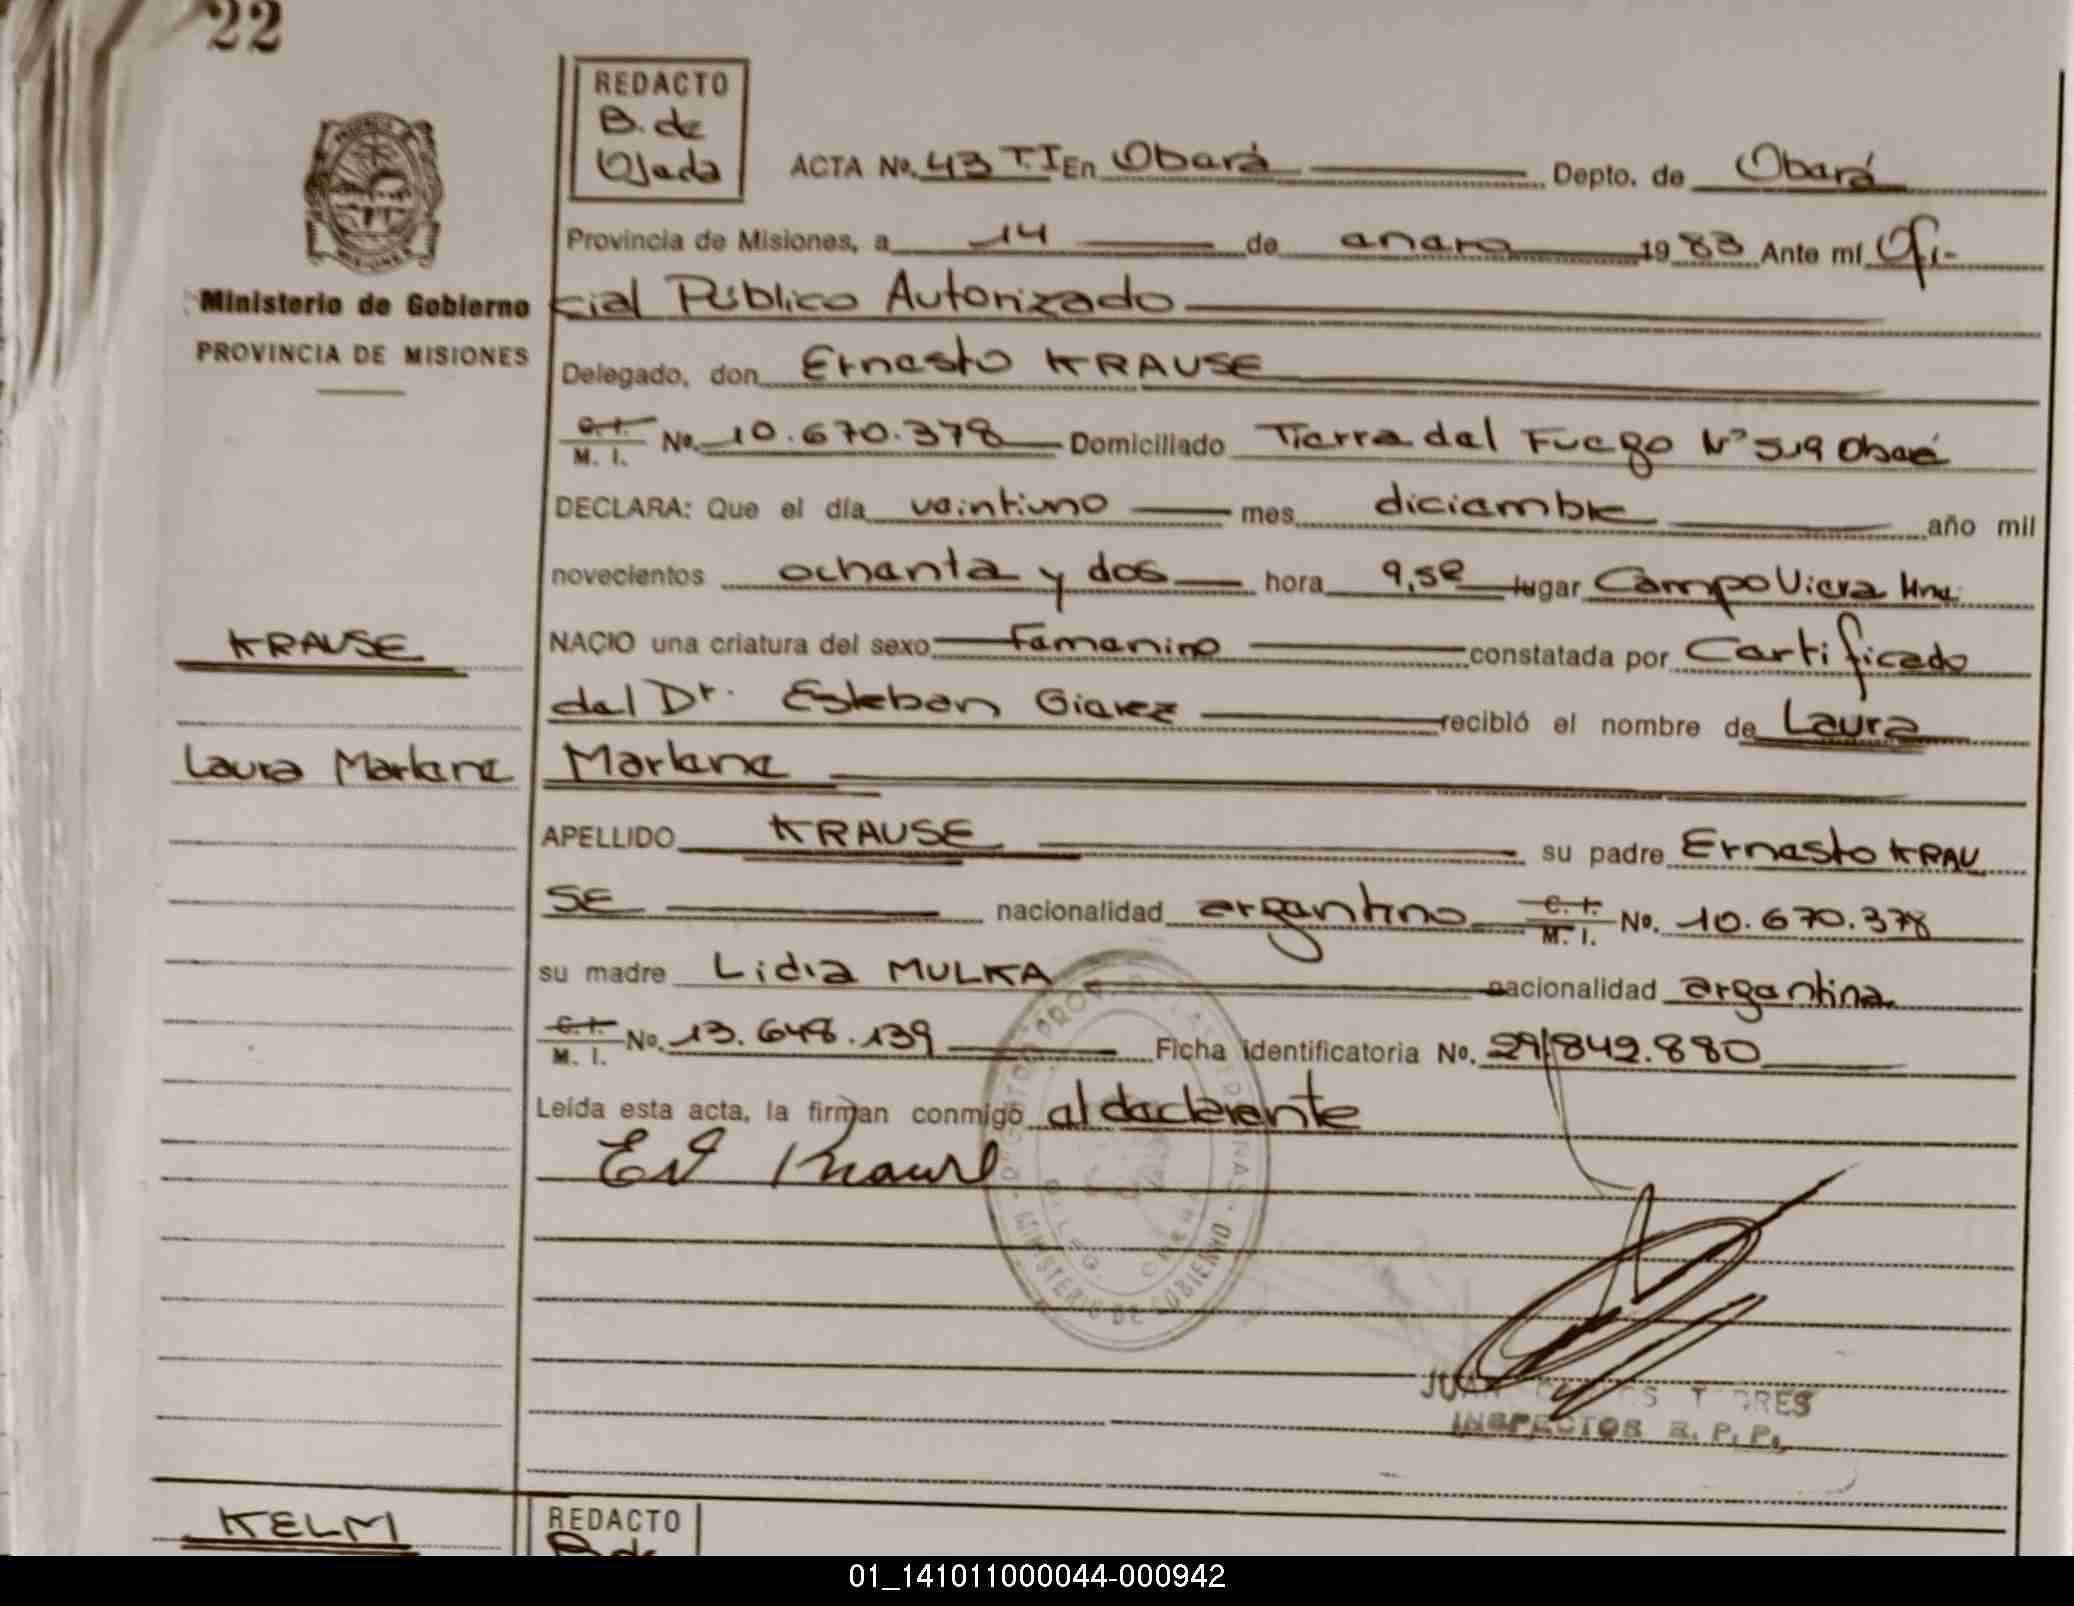 22
REDACTO
B. de
Ojeda
ACTA No. 43 T.I En Oberá Depto. de Oberá
Provincia de Misiones, a 14 de enero 1983 Ante mí Ofi-
cial Público Autorizado
Ministerio de Gobierno
PROVINCIA DE MISIONES
Delegado, don Ernesto KRAUSE
C. I. M. I. No. 10.670.378 Domiciliado Tierra del Fuego Nº 519 Oberá
DECLARA: Que el día veintiuno mes diciembre año mil
novecientos ochenta y dos hora 9,50 lugar Campo Viera
KRAUSE
NACIO una criatura del sexo Femenino constatada por Certificado
del Dr. Esteban recibió el nombre de Laura
Laura Marlene
Marlene
APELLIDO KRAUSE su padre Ernesto KRAU
SE nacionalidad argentino C. I. M. I. No. 10.670.378
su madre Lidia MULKA nacionalidad argentina
C. I. M. I. No. 13.648.139 Ficha identificatoria No. 29.842.880
Leída esta acta, la firman conmigo el declarente
MINISTERIO DE GOBIERNO
INSPECTOR R. P. P.
KELM
REDACTO
B. de
01_141011000044-000942